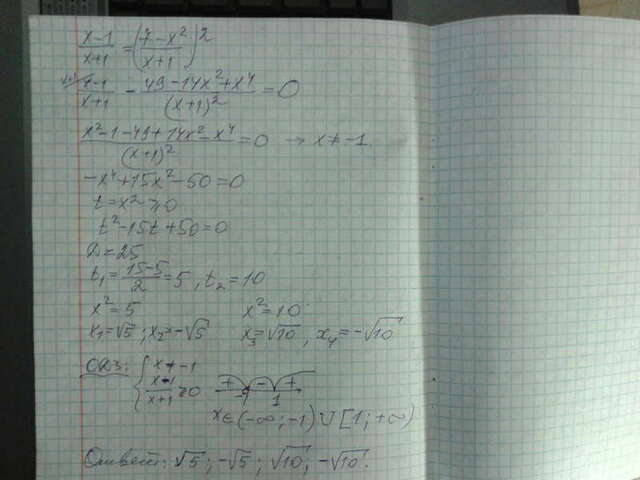 x-1/x+1 = (7-x²/x+1)²
x-1/x+1 - 49-14x²+x⁴/(x+1)² = 0
x²-1-49+14x²-x⁴/(x+1)² = 0 → x ≠ -1
-x⁴+15x²-50=0
t=x²≥0
t²-15t+50=0
D=25
t₁=15-5/2=5, t₂=10
x²=5 x²=10
x₁=√5; x₂=-√5 x₃=√10, x₄=-√10
ОДЗ: { x≠-1
x-1/x+1≥0 + - +
-1 1
x∈(-∞;-1)∪[1;+∞)
Ответ: √5; -√5; √10; -√10.